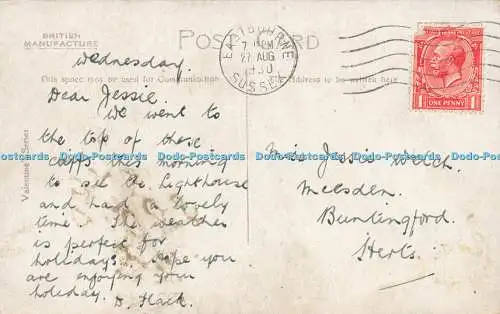 BRITISH
MANUFACTURE
POST CARD
EASTBOURNE
7 15 PM
27 AUG
1930
SUSSEX
ONE PENNY
This space may be used for Communication
The Address to be written here
Valentine's Series
Wednesday.
Dear Jessie.
We went to
the top of these
cliffs this morning
to see the lighthouse
and had a lovely
time. The weather
is perfect for
holidays. Hope you
are enjoying your
holiday. D. Flack.
Miss Jessie Welch.
Meesden.
Buntingford.
Herts.
Dodo-Postcards Dodo-Postcards Dodo-Postcards Dodo-Postcards Dodo-Postcards Dodo-Postcards